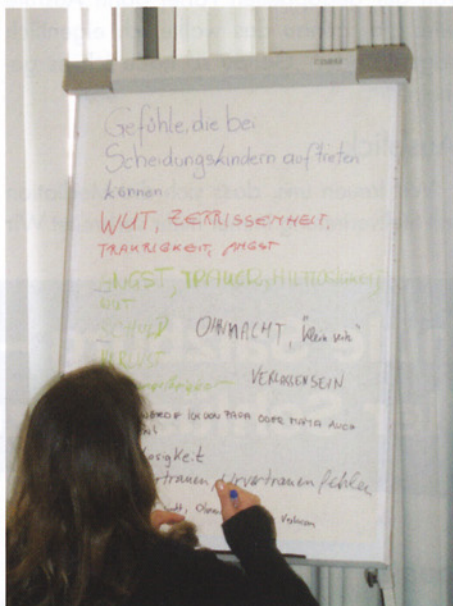 Gefühle, die bei
Scheidungskindern auftreten
können
WUT, ZERRISSENHEIT,
TRAURIGKEIT, ANGST
ANGST, TRAUER, HILFLOSIGKEIT,
WUT
SCHULD OHNMACHT, "klein sein"
VERLUST
VERLASSENSEIN
ICH DEN PAPA ODER MAMA AUCH
losigkeit
trauen, Urvertrauen fehlen